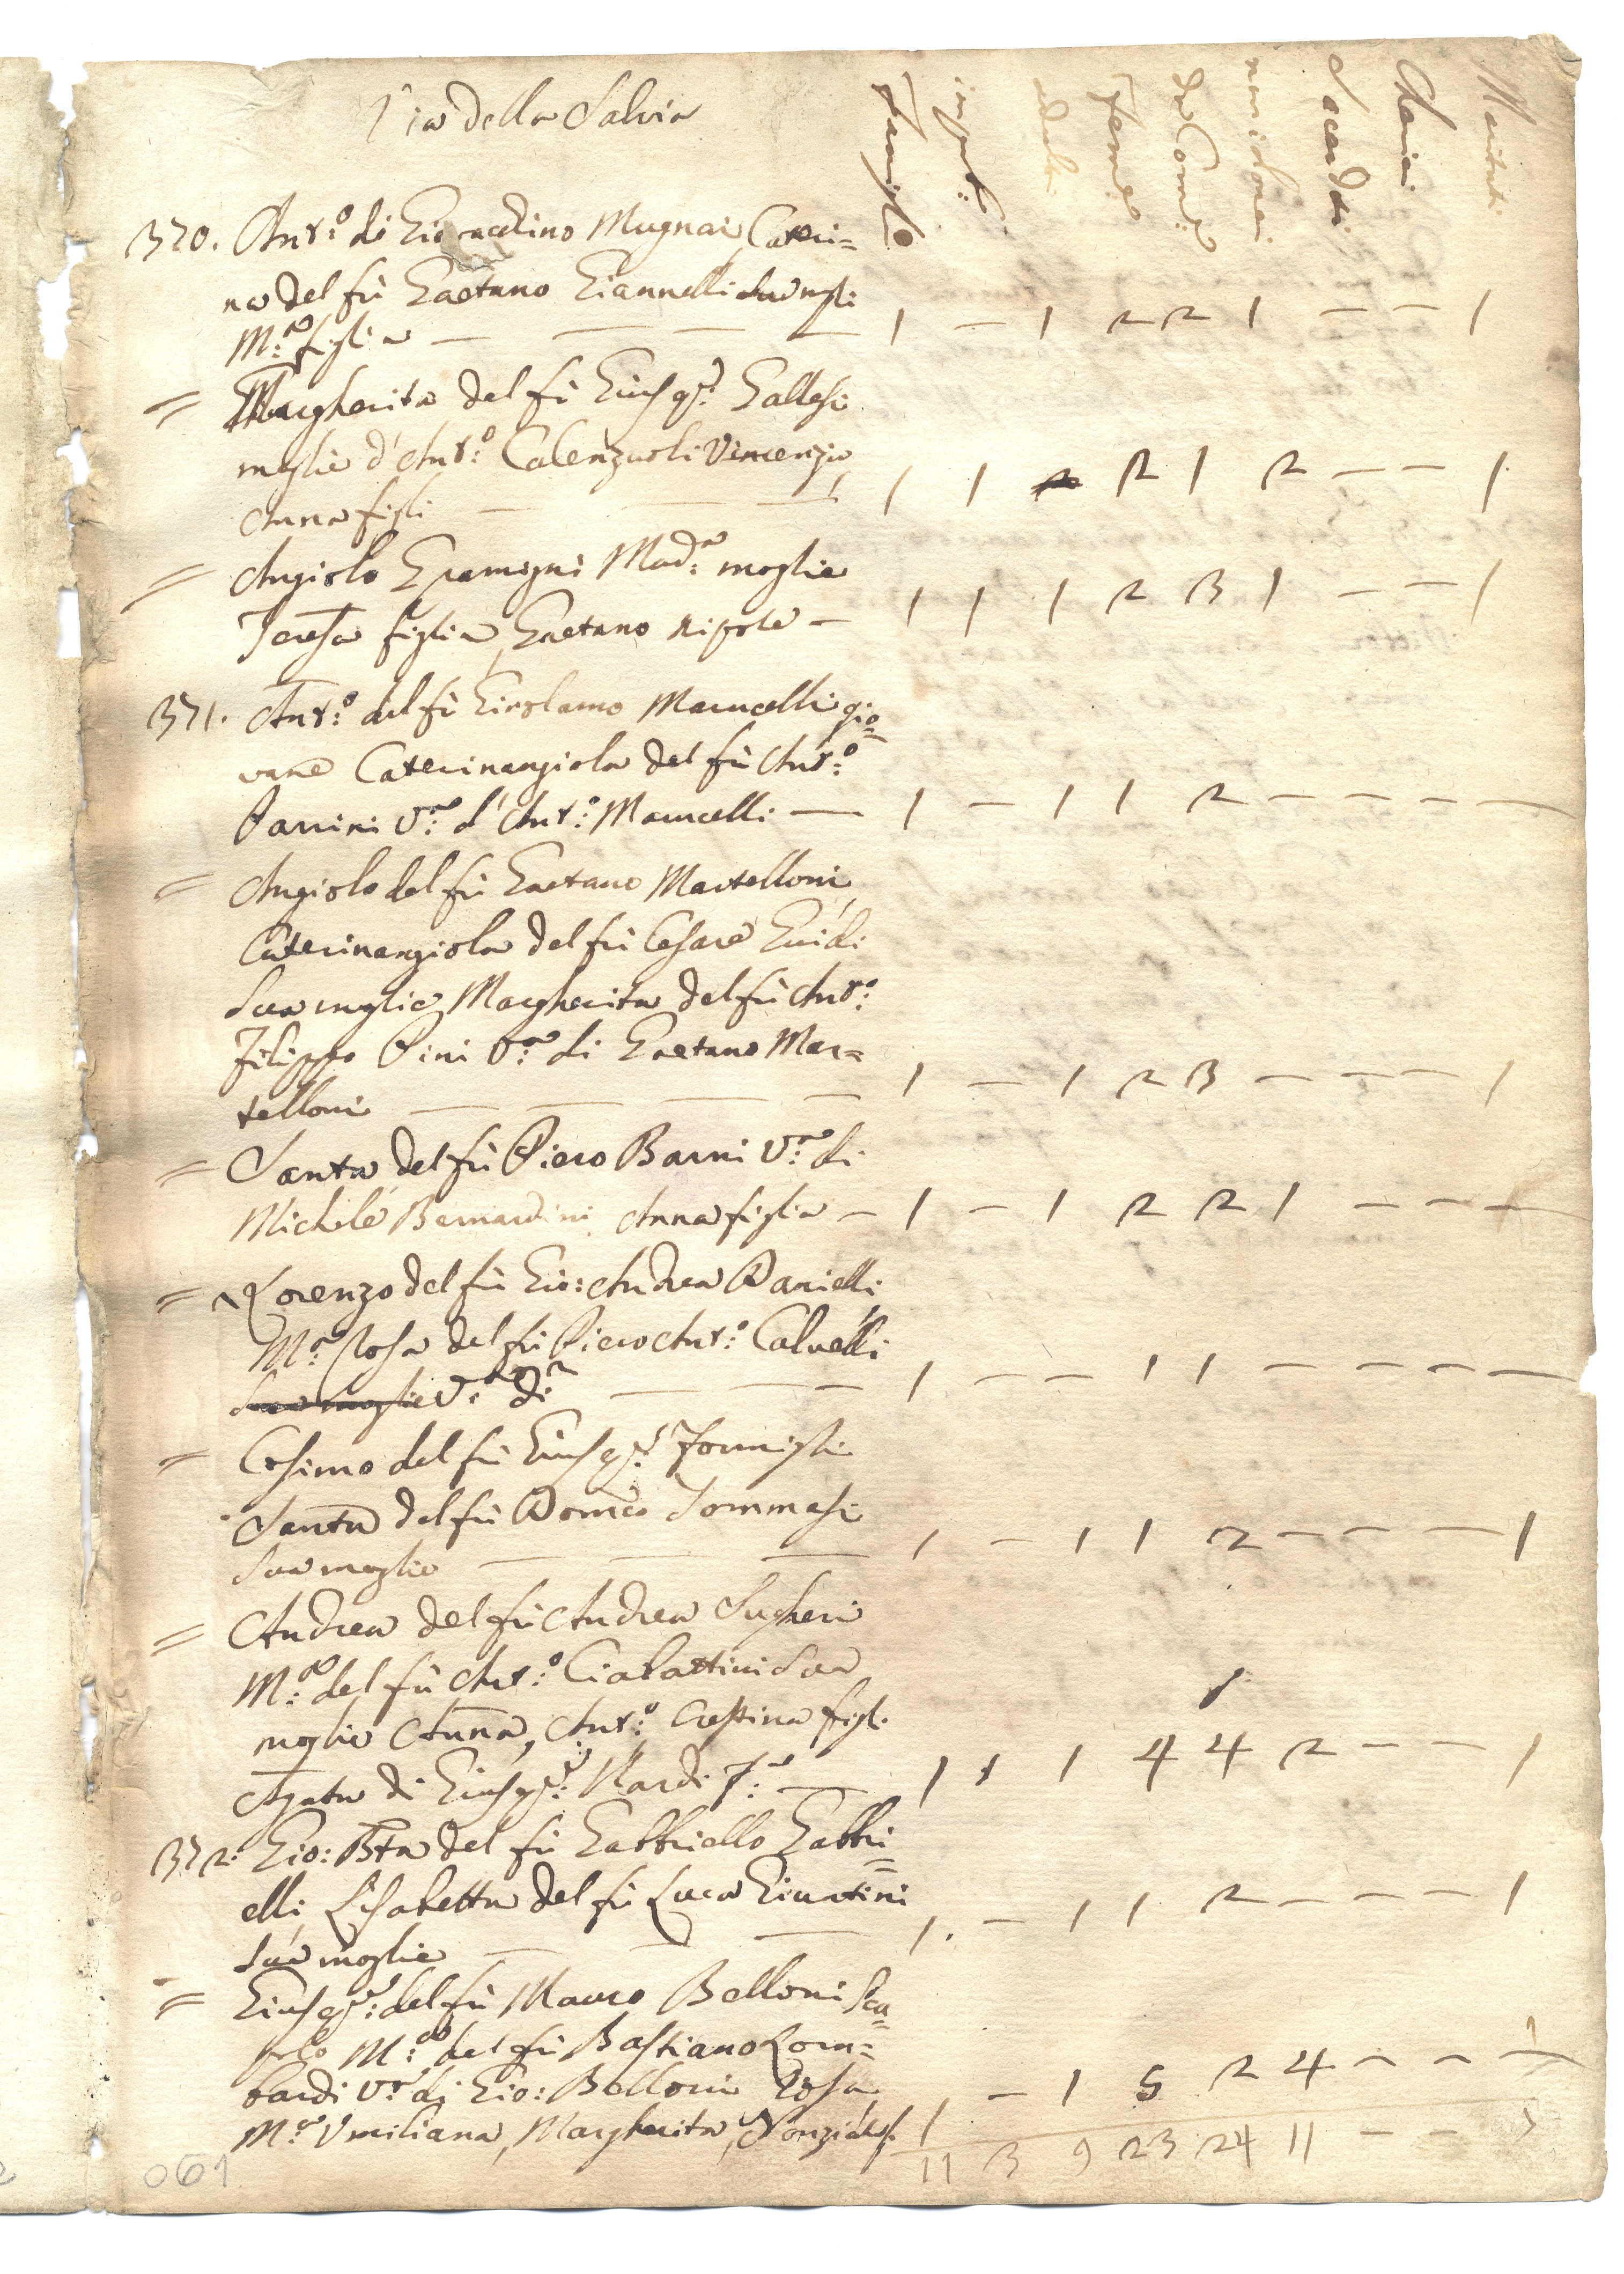 Via della Salvia
Famiglie impub. adulti Femine da Com.e non idonei Sacerdoti Cherici Mariti
370. Ant.o di Gio: Mugnai, Cateri=
na del fù Gaetano Giannelli sua mogli
M.a figlia — — — — 1 — 1 2 2 1 — — 1
= Margherita del fù Gius.e Gallesi
moglie d'Ant.o Calenzuoli Vincenzio,
Anna figli — — — 1 1 2 2 1 2 — — 1
= Angiolo Gramigni Mad.a moglie
Teresa figlia, Gaetano nipote — 1 1 1 2 3 1 — — 1
371. Ant.o del fù Girolamo Marucelli gio=
vane Caterinangiola del fù Ant.o
Parrini V.a d'Ant.o Marucelli — 1 — 1 1 2 — — — —
= Angiolo del fù Gaetano Martelloni,
Caterinangiola del fù Cesare Guidi
sua moglie, Margherita del fù Ant.o
Filippo Pini V.a di Gaetano Mar=
telloni — — — — 1 — 1 2 3 — — — 1
= Santa del fù Piero Barni V.a di
Michele Bernardini, Anna figlia — 1 — 1 2 2 1 — — —
= Lorenzo del fù Gio: Andrea Danielli
M.a Rosa del fù Piero Ant.o Calvelli
sua moglie V.a di — — — 1 — — 1 1 — — — —
= Cosimo del fù Gius.e Formigli
Santa del fù Dom.co Tommasi
sua moglie — — — 1 — 1 1 2 — — — 1
= Andrea del fù Andrea Sugheri
M.a del fù Ant.o Ciabattini sua
moglie Anna, Ant.o Crestina figli
Agata di Gius.e Nardi F.a — 1 1 1 4 4 2 — — 1
372. Gio: Bta del fù Gabbriello Gabbri=
elli, Lisabetta del fù Luca Giuntini
sua moglie — — — 1. — 1 1 2 — — — 1
= Gius.e del fù Mauro Belloni Sca=
polo M.a del fù Bastiano Lom=
bardi V.a di Gio: Belloni Rosa,
M.a Umiliana, Margherita, Nonziata f. 1 — 1 5 2 4 — — —
11 3 9 23 24 11 — —
061